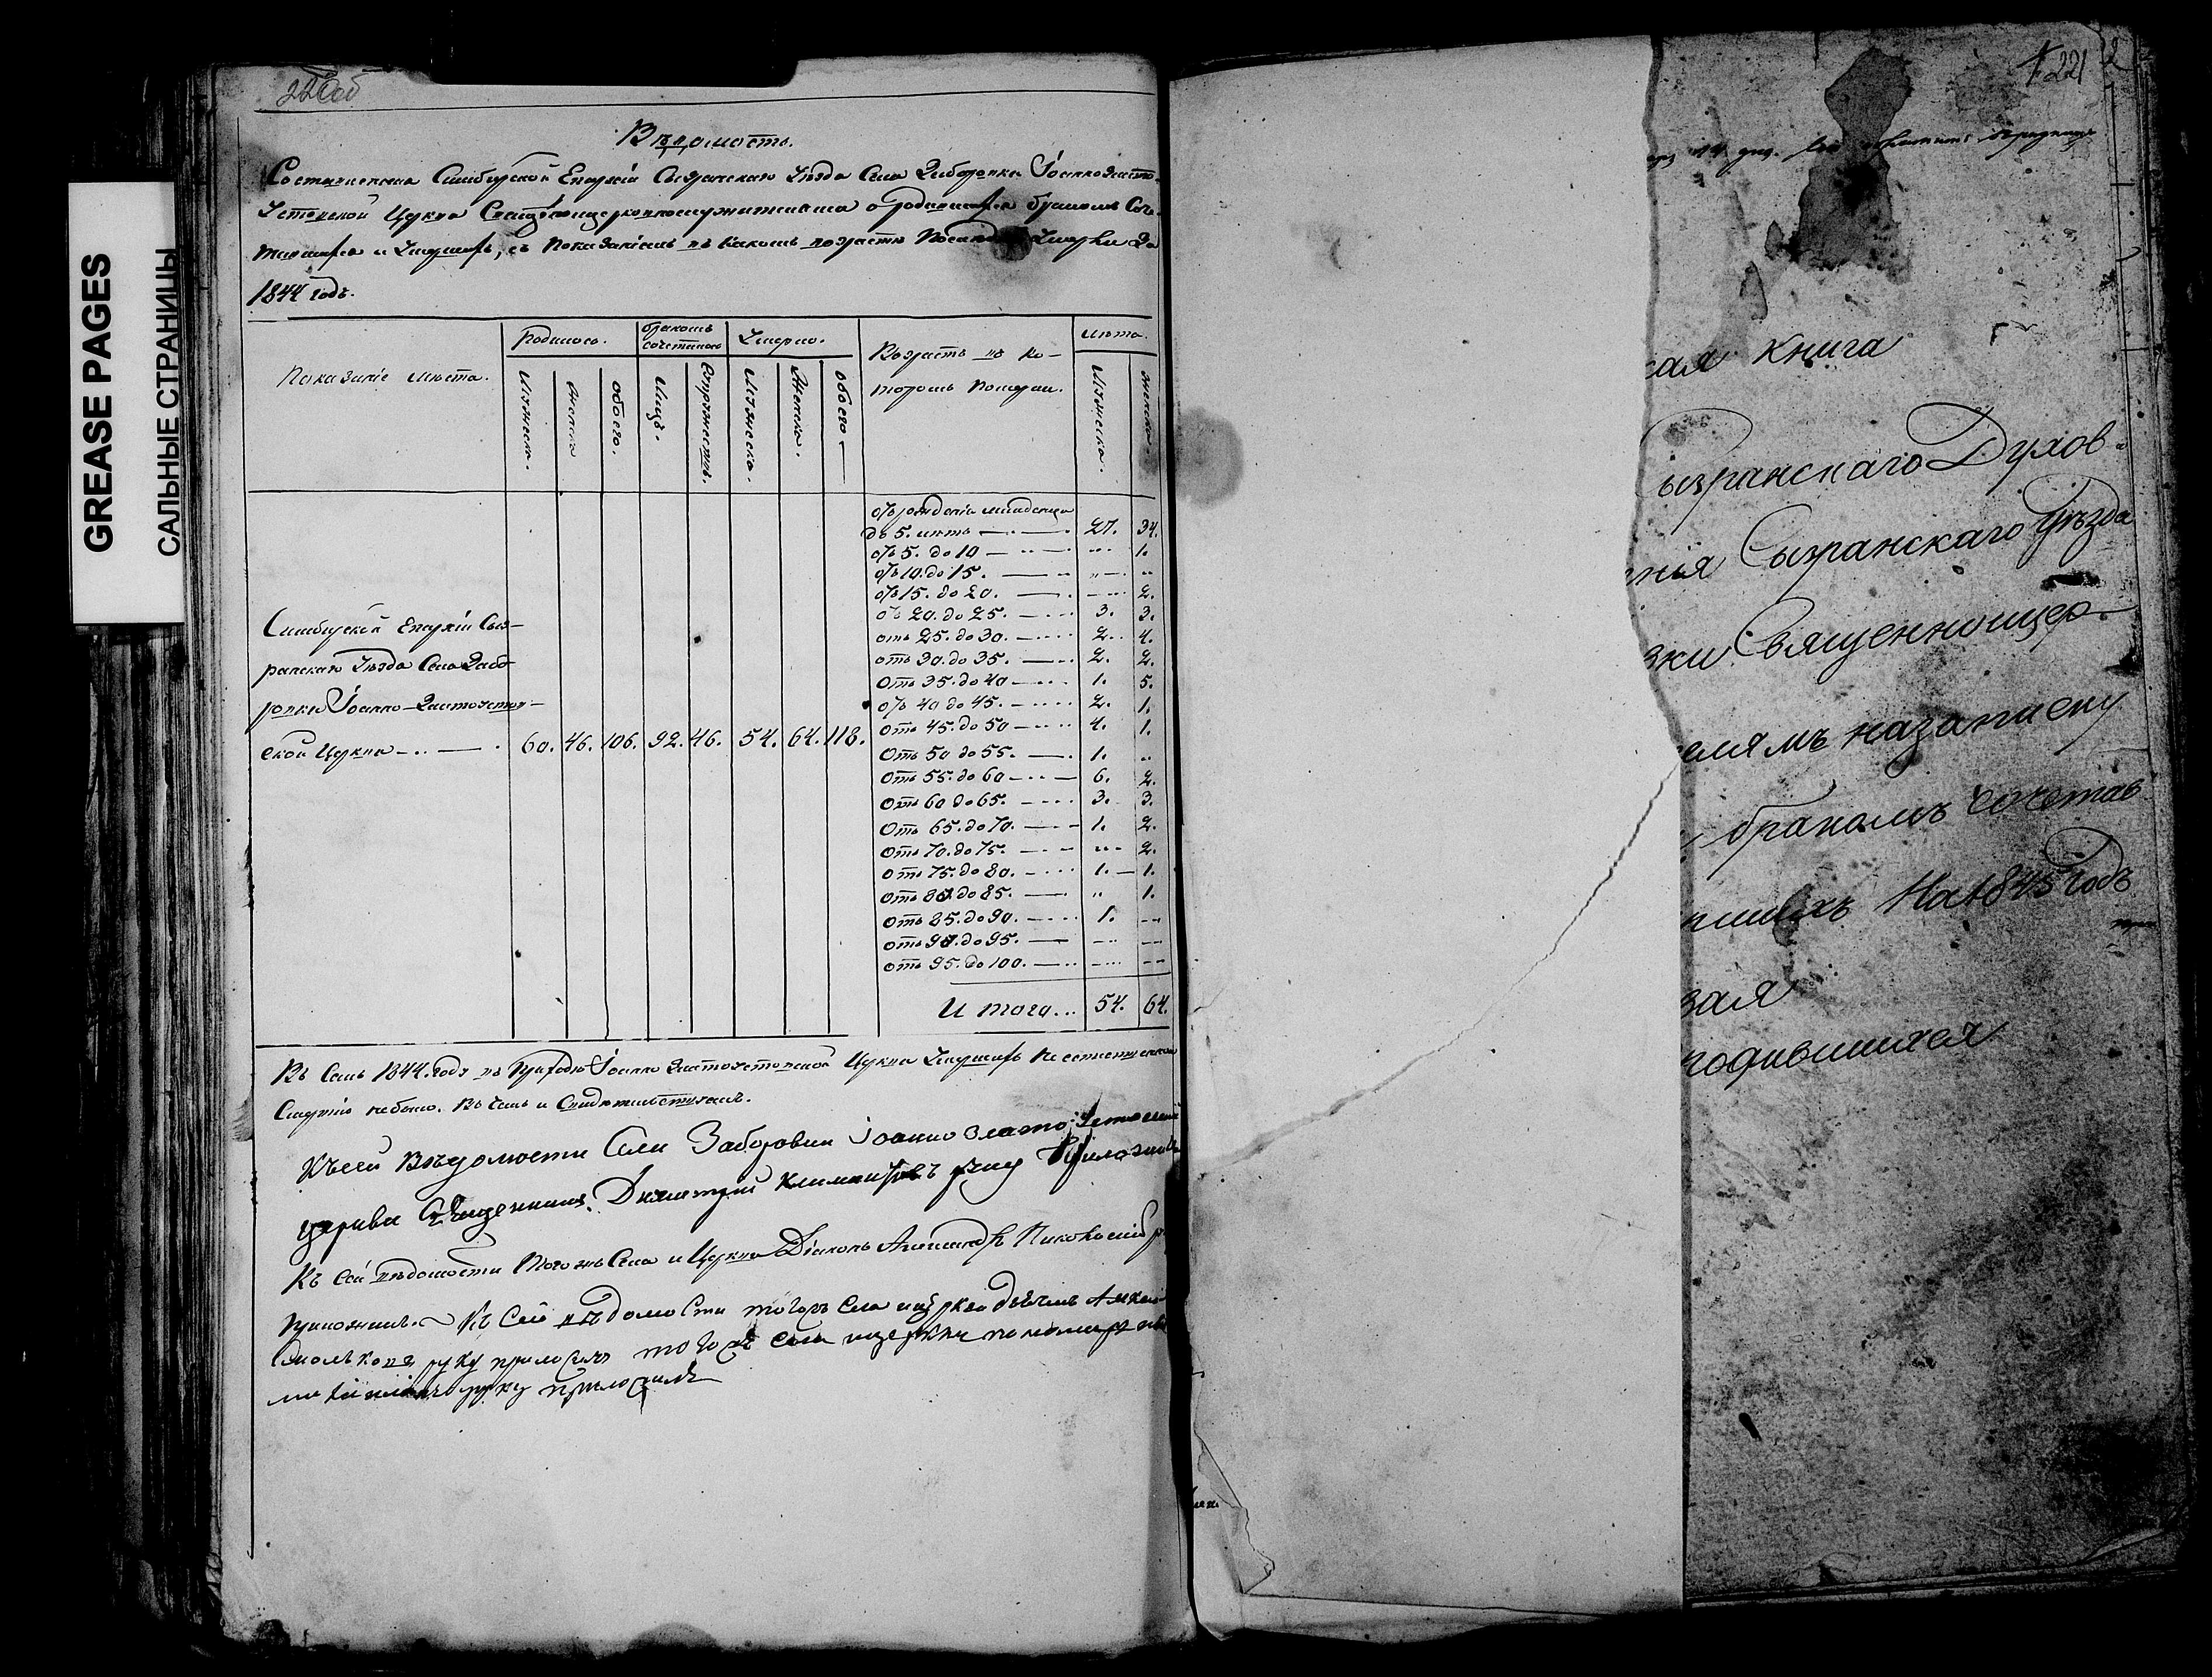 GREASE PAGES
САЛЬНЫЕ СТРАНИЦЫ
220об
Вѣдомость.
Составленная Симбирской Епархіи Сызранскаго Уѣзда Села Заборовки Іоанно злато-
Устовской Церкви Священноцерковнослужителями о родившихся бракомъ Соче-
тавшихся и Умершихъ, съ показаніемъ въ какомъ возрастѣ Померли За
1844 годъ.
Показаніе мѣста.
Родилось.
Мужеска.
Женска
обоего.
бракомъ сочеталось
Лицъ.
Супружествъ.
Умерло.
Мужеска.
Женска.
обоего
Возрастъ въ Ко-
торомъ померли.
лѣта.
Мужеска.
женска.
Симбирской Епархіи Сыз-
ранскаго Уѣзда Села Забо-
ровки Іоанно-Златоустов-
ской Церкви 60. 46. 106. 92. 46. 54. 64. 118.
отъ рожденія младенца
до 5. лѣтъ 27. 34.
отъ 5. до 10 ... 1.
отъ 10. до 15. „ „
отъ 15. до 20. ... 2.
отъ 20. до 25. 3. 3.
отъ 25. до 30. 2. 4.
отъ 30. до 35. 2. 2.
отъ 35. до 40 1. 5.
отъ 40 до 45. 2. 1.
отъ 45. до 50 4. 1.
отъ 50 до 55. 1. „
отъ 55. до 60 6. 2.
отъ 60 до 65. 3. 3.
отъ 65. до 70. 1. 2.
отъ 70. до 75. „ 2.
отъ 75. до 80. 1. 1.
отъ 80 до 85. „ 1.
отъ 85. до 90. 1. --
отъ 90. до 95. -- --
отъ 95. до 100. -- --
И того... 54. 64.
Въ Семъ 1844. годѣ въ Приходѣ Іоанно Златоустовской Церкви Умершихъ не естественною
Смертію небыло. Въ чемъ и Свидѣтельствуемъ.
Къ сей Вѣдомости Села Заборовки Іоанно Злато Устовской
церкви Священникъ Димитрій руку Приложилъ
Къ Сей вѣдомости Того жъ Села и Церкви Діаконъ Александръ
приложилъ. Къ Сей вѣдомости того жъ Села и церкви дьячекъ
руку приложилъ того жъ села и церкви пономарь
руку приложилъ
221
2
кая книга
ызранскаго Духов-
нія Сызранскаго Уѣзда
вки Священноцер-
елямъ на записку
бракомъ сочетав
ршихъ На 1845 годъ
вая
родившихся